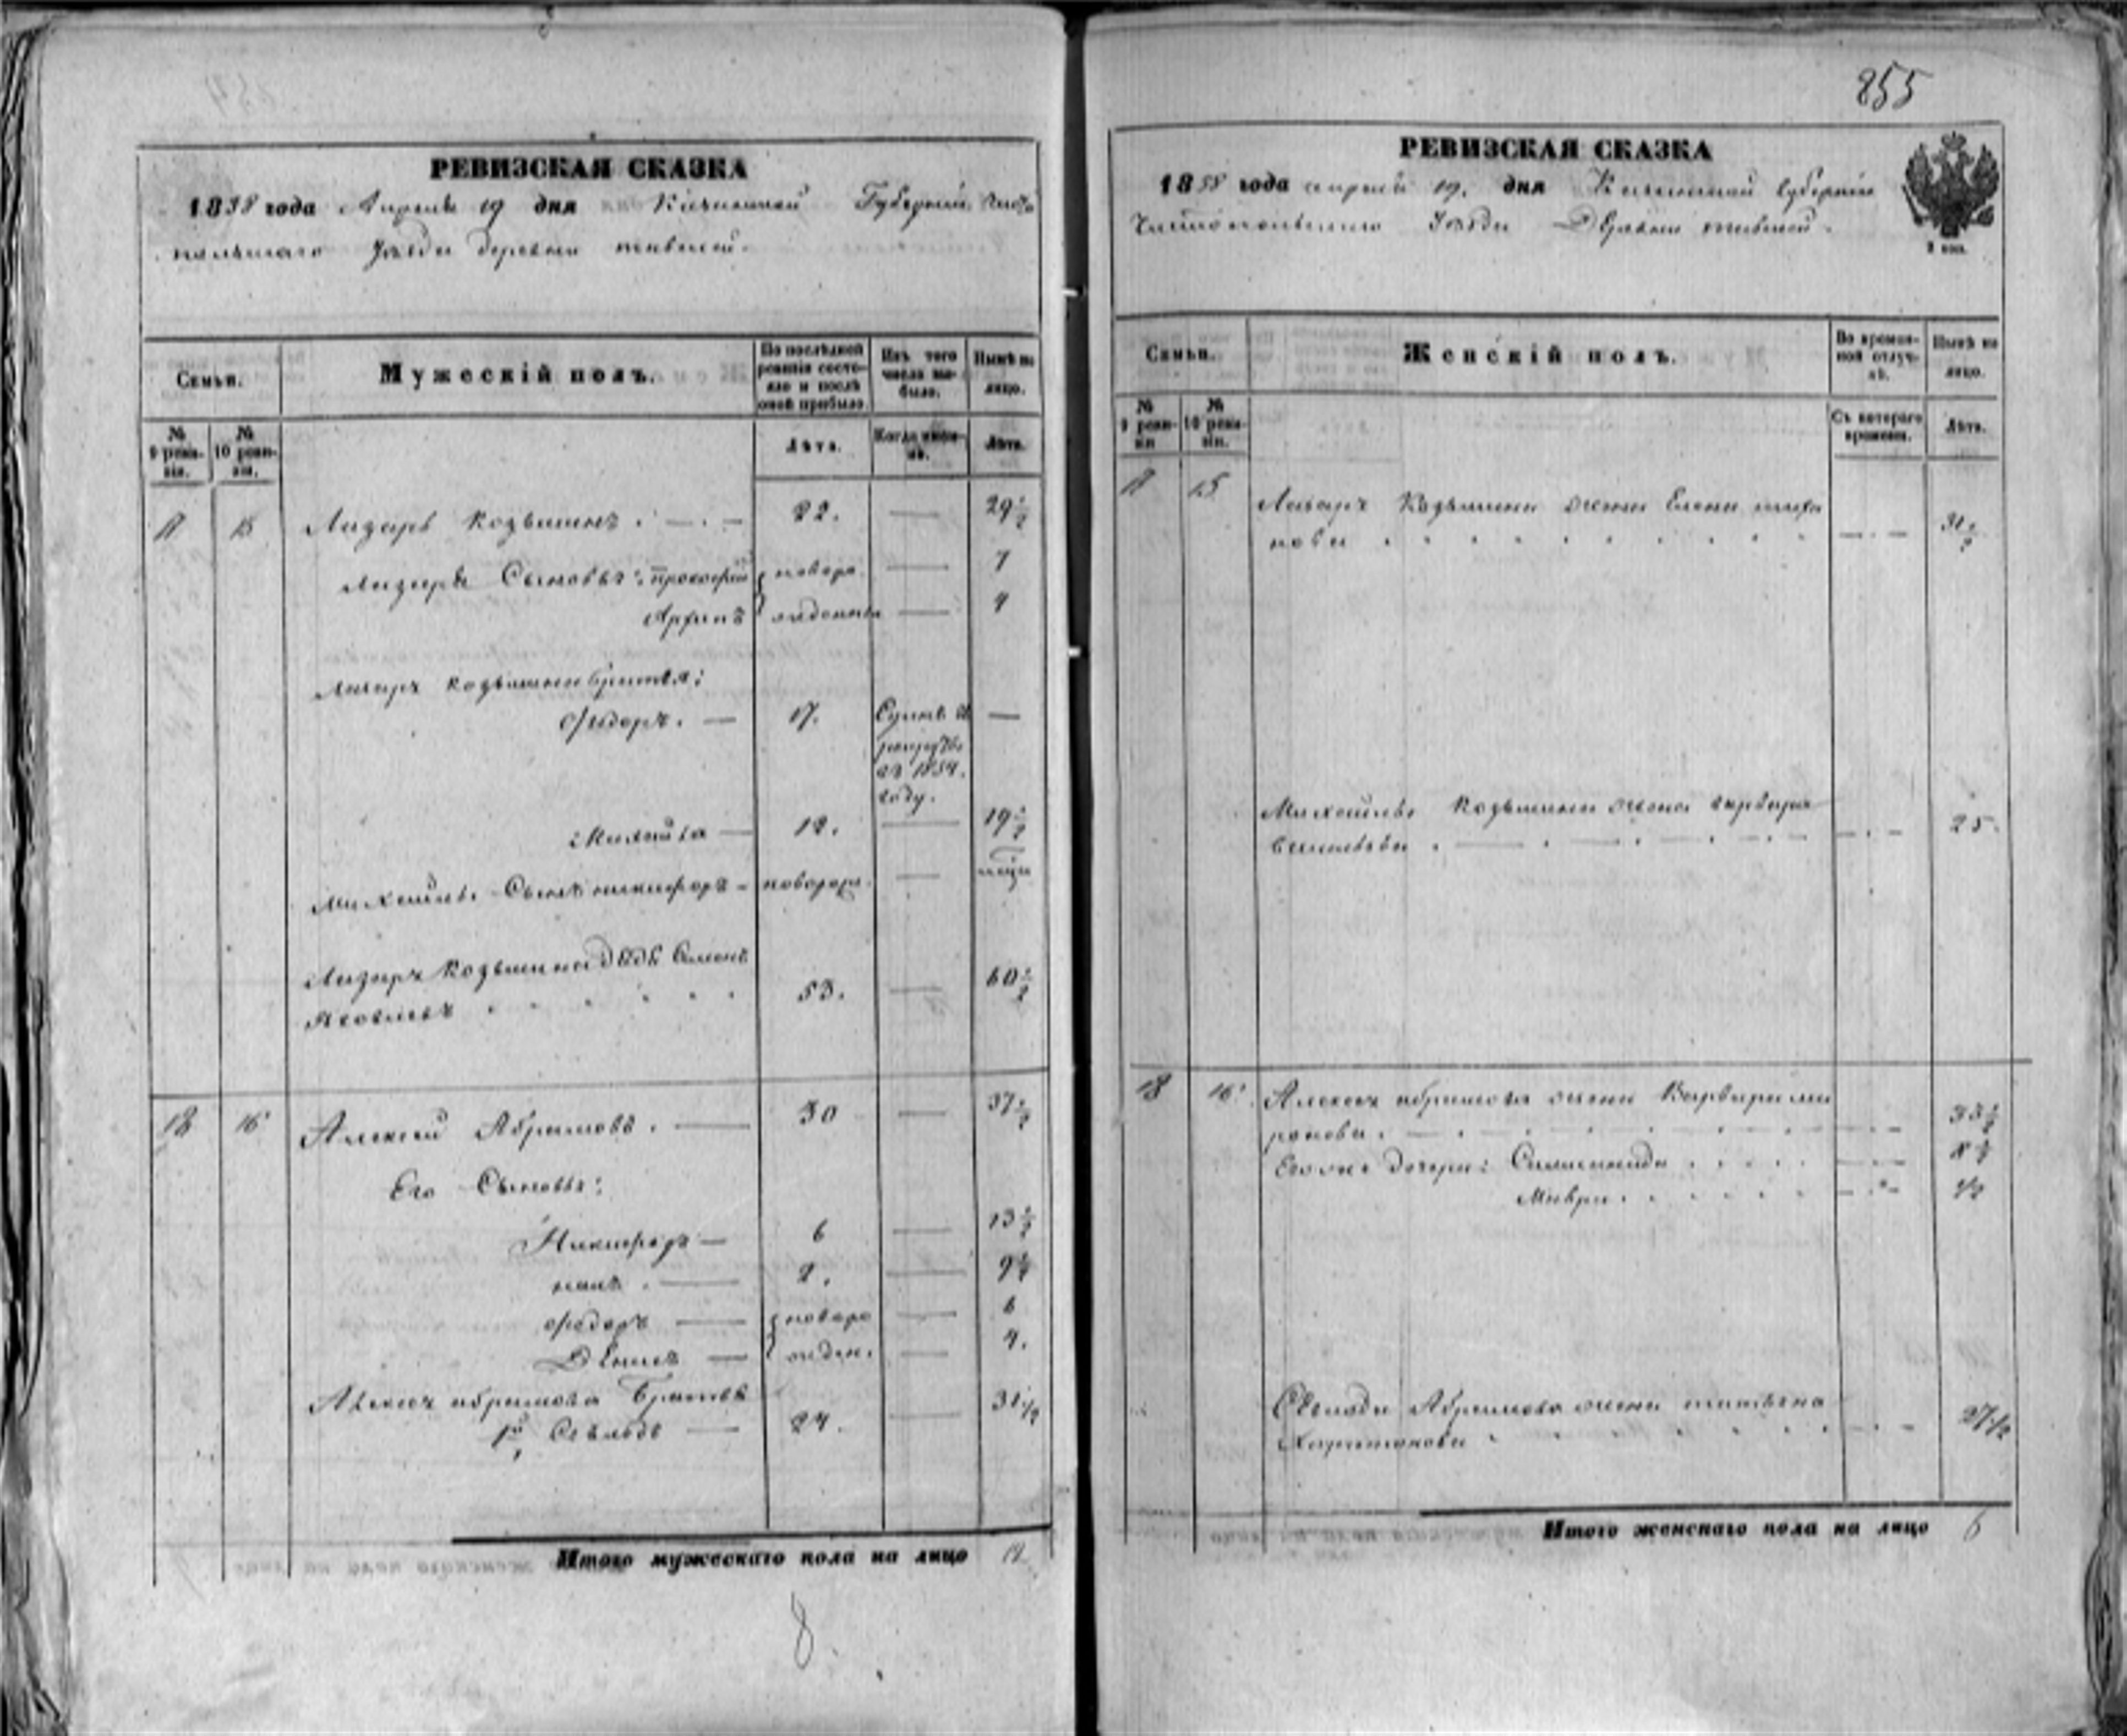 855
РЕВИЗСКАЯ СКАЗКА
1858 года Апреля 19 дня Казанской Губернии Чисто
польскаго Уезда деревни
Семьи.
Мужескій полъ.
По послѣдней ревизіи состояло и послѣ оной прибыло.
Изъ того числа выбыло.
Нынѣ на лицо.
№ 9 ревизіи.
№ 10 ревизіи.
Лѣта.
Когда именно.
Лѣта.
17 15 Лазарь Козьминъ . — . — 22. — 29 1/2
Лазаря Сыновья: прокофий новоро — 7
Архипъ жденны — 4
Лазаря Козьмина братья:
Фѣдоръ. — 17. —
въ 1854.
году.
Михайла — 12. — 19 1/2
Михайлы Сынъ никифоръ - новорож. —
Лазаря Козьмина дядя Семенъ
Яковлевъ 53. — 60 1/2
18 16 Алексей Абрамовъ . — 30 — 37 1/2
Его Сыновья:
Никифоръ — 6 — 13 1/2
— 2. — 9 1/2
федоръ — новоро — 6
Денисъ — жден. — 4.
Алексея абрамова Братья
24. — 31 1/2
Итого мужескаго пола на лицо 12
8.
РЕВИЗСКАЯ СКАЗКА
1858 года апреля 19. дня Казанской губернии
Чистопольскаго Уезда Деревни
Семьи.
Женскій полъ.
Во временной отлучкѣ.
Нынѣ на лицо.
№ 9 ревизіи
№ 10 ревизіи.
Съ котораго времени.
Лѣта.
17 15 Лазаря Козьмина жена Елена
нова 31 1/2
Михайлы Козьмина жена варвара
Васильева . — . — . — . — 25.
18 16. Алексея абрамова жена Варвара ми
ронова . — 33 1/2
Его же дочери: Саломонида 8 1/2
Мавра 1/2
Абрамова жена татьяна
Харитонова 27 1/2
Итого женскаго пола на лицо 6